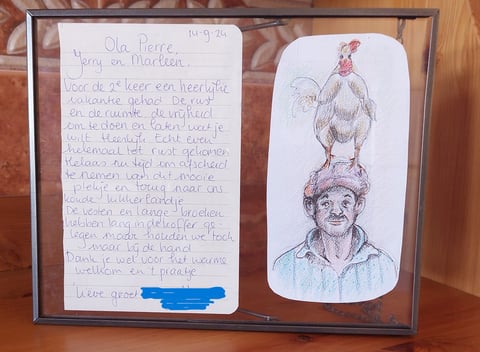 14-9-24
Ola Pierre,
Jerry en Marleen.
Voor de 2e keer een heerlijke
vakantie gehad. De rust
en de ruimte, de vrijheid
om te doen en laten wat je
wilt. Heerlijk. Echt even
helemaal tot rust gekomen.
Helaas nu tijd om afscheid
te nemen van dit mooie
plekje en terug naar ons
koude kikkerlandje
De vesten en lange broeken
hebben lang in de koffer ge-
legen maar houden we toch
maar bij de hand
Dank je wel voor het warme
welkom en 't praatje
Lieve groet